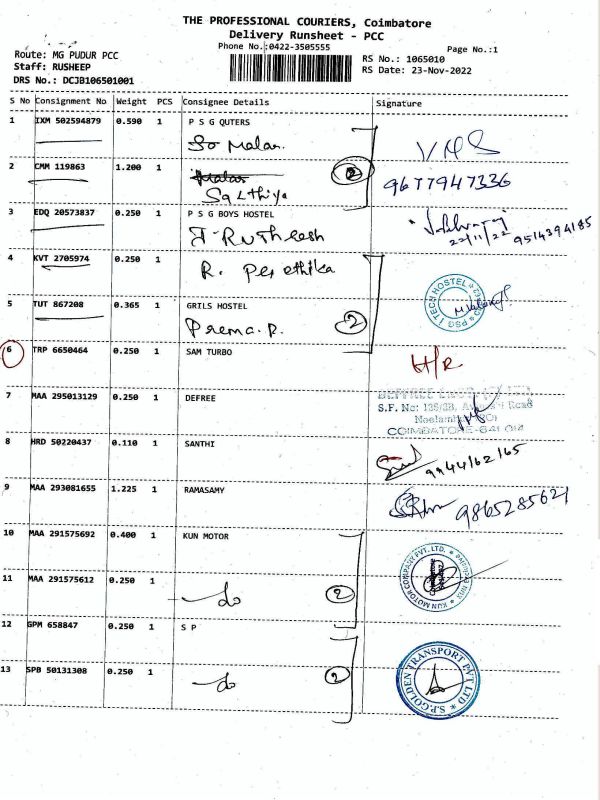 THE PROFESSIONAL COURIERS, Coimbatore
Delivery Runsheet - PCC
Phone No.:0422-3505555
Page No.:1
Route: MG PUDUR PCC
Staff: RUSHEEP
DRS No.: DCJB106501001
RS No.: 1065010
RS Date: 23-Nov-2022
S No Consignment No Weight PCS Consignee Details Signature
1 IXM 502594879 0.590 1 P S G QUTERS
So Malar.
VMS
2 CMM 119863 1.200 1 Malar
Sakthiya
2
9677947336
3 EDQ 20573837 0.250 1 P S G BOYS HOSTEL
J. Rutheesh
22/11/22 9514394185
4 KVT 2705974 0.250 1 R. Perethika
5 TUT 867208 0.365 1 GRILS HOSTEL
Prema. R.
2
PSG I TECH HOSTEL
6 TRP 6650464 0.250 1 SAM TURBO
H/R
7 MAA 295013129 0.250 1 DEFREE
S.F. No: Road
COIMBATORE-641 014
8 HRD 50220437 0.110 1 SANTHI
9944162165
9 MAA 293081655 1.225 1 RAMASAMY
9865285621
10 MAA 291575692 0.400 1 KUN MOTOR
KUN MOTOR COMPANY PVT. LTD.
11 MAA 291575612 0.250 1
do
2
12 GPM 658847 0.250 1 S P
13 SPB 50131308 0.250 1
do
2
S.P.GOLDEN TRANSPORT PVT LTD